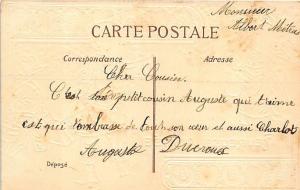 Monsieur
CARTE POSTALE
Albert
Correspondance
Adresse
Cher Cousin.
C'est ton petit cousin Auguste qui t'aime
est qui t'embrasse de tout son cœur et aussi Charlot
Auguste Ducroux
Déposé